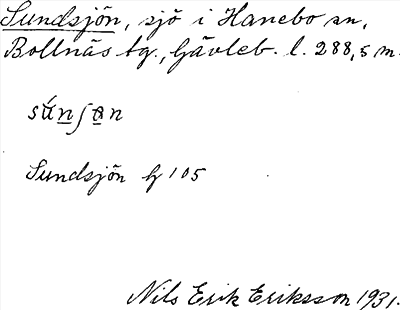 Sundsjön, sjö i Hanebo sn,
Bollnäs tg., Gävleb. l. 288,5 m.
súnʃɵn
Sundsjön G 105
Nils Erik Eriksson 1931.